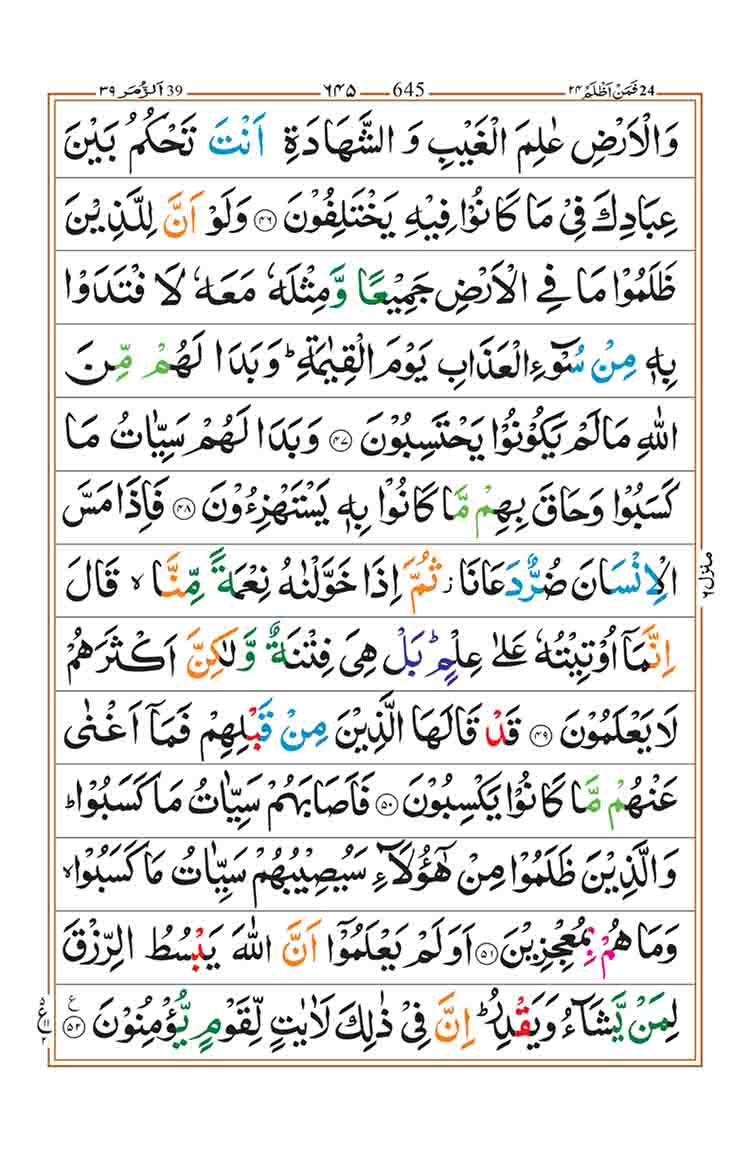 39 اَلزُّمَر ٣٩ ۶۴۵ 645 ٢٤ فَمَنْ اَظْلَمُ 24
وَالْاَرْضِ عٰلِمَ الْغَيْبِ وَ الشَّهَادَةِ اَنْتَ تَحْكُمُ بَيْنَ
عِبَادِكَ فِىْ مَا كَانُوْا فِيْهِ يَخْتَلِفُوْنَ ﴿۴۶﴾ وَلَوْ اَنَّ لِلَّذِيْنَ
ظَلَمُوْا مَا فِى الْاَرْضِ جَمِيْعًا وَّمِثْلَهٗ مَعَهٗ لَا فْتَدَوْا
بِهٖ مِنْ سُوْٓءِ الْعَذَابِ يَوْمَ الْقِيٰمَةِ ؕ وَبَدَا لَهُمْ مِّنَ
اللّٰهِ مَا لَمْ يَكُوْنُوْا يَحْتَسِبُوْنَ ﴿۴۷﴾ وَبَدَا لَهُمْ سَيِّاٰتُ مَا
كَسَبُوْا وَحَاقَ بِهِمْ مَّا كَانُوْا بِهٖ يَسْتَهْزِءُوْنَ ﴿۴۸﴾ فَاِذَا مَسَّ
الْاِنْسَانَ ضُرٌّ دَعَانَا ز ثُمَّ اِذَا خَوَّلْنٰهُ نِعْمَةً مِّنَّا ۙ قَالَ
اِنَّمَاۤ اُوْتِيْتُهٗ عَلٰى عِلْمٍ ؕ بَلْ هِىَ فِتْنَةٌ وَّلٰكِنَّ اَكْثَرَهُمْ
لَا يَعْلَمُوْنَ ﴿۴۹﴾ قَدْ قَالَهَا الَّذِيْنَ مِنْ قَبْلِهِمْ فَمَاۤ اَغْنٰى
عَنْهُمْ مَّا كَانُوْا يَكْسِبُوْنَ ﴿۵۰﴾ فَاَصَابَهُمْ سَيِّاٰتُ مَا كَسَبُوْا ؕ
وَالَّذِيْنَ ظَلَمُوْا مِنْ هٰٓؤُلَاۤءِ سَيُصِيْبُهُمْ سَيِّاٰتُ مَا كَسَبُوْا ۙ
وَمَا هُمْ بِمُعْجِزِيْنَ ﴿۵۱﴾ اَوَلَمْ يَعْلَمُوْۤا اَنَّ اللّٰهَ يَبْسُطُ الرِّزْقَ
لِمَنْ يَّشَآءُ وَيَقْدِرُ ؕ اِنَّ فِىْ ذٰلِكَ لَاٰيٰتٍ لِّقَوْمٍ يُّؤْمِنُوْنَ ﴿۵۲﴾ ع
منزل ٦
ع ۵ ١١ ٢